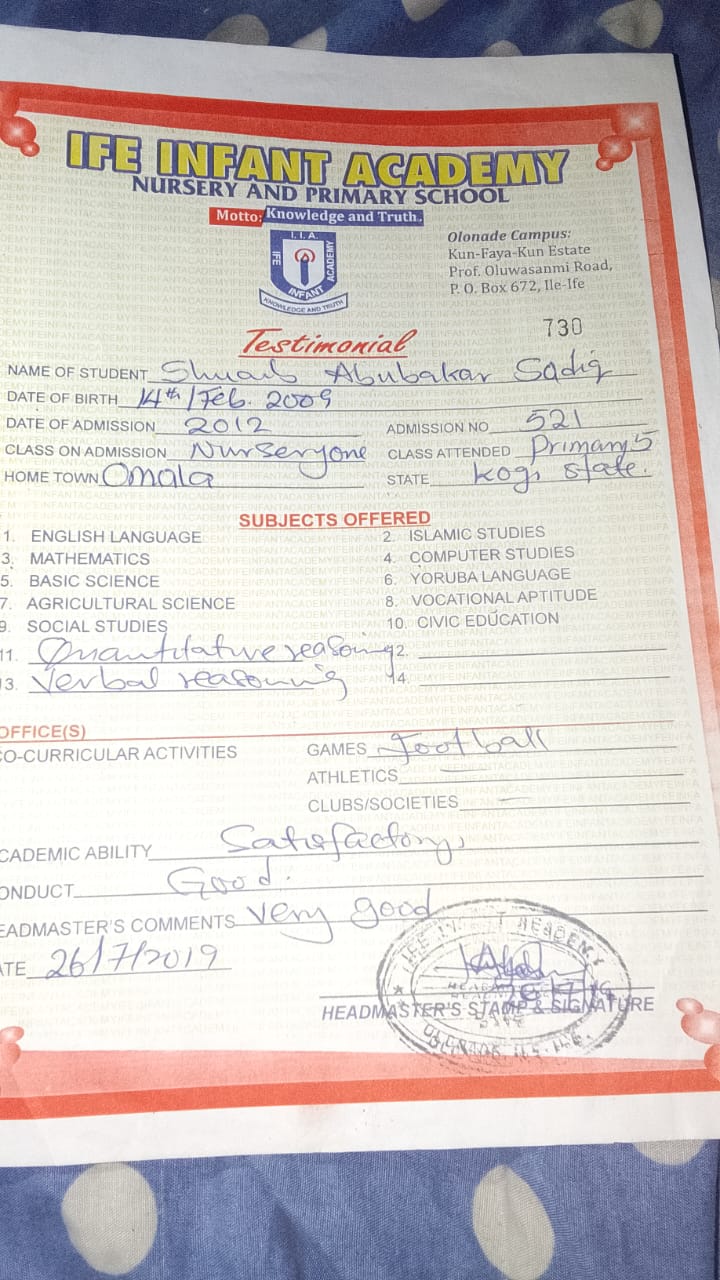 IFE INFANT ACADEMY
NURSERY AND PRIMARY SCHOOL
Motto: Knowledge and Truth.
I. I. A.
IFE INFANT ACADEMY
KNOWLEDGE AND TRUTH
Olonade Campus:
Kun-Faya-Kun Estate
Prof. Oluwasanmi Road,
P. O. Box 672, Ile-Ife
Testimonial
730
NAME OF STUDENT Shuaib Abubakar Sadiq
DATE OF BIRTH 14th/Feb. 2009
DATE OF ADMISSION 2012 ADMISSION NO 521
CLASS ON ADMISSION Nursery one CLASS ATTENDED Primary 5
HOME TOWN Omala STATE Kogi state.
SUBJECTS OFFERED
1. ENGLISH LANGUAGE 2. ISLAMIC STUDIES
3. MATHEMATICS 4. COMPUTER STUDIES
5. BASIC SCIENCE 6. YORUBA LANGUAGE
7. AGRICULTURAL SCIENCE 8. VOCATIONAL APTITUDE
9. SOCIAL STUDIES 10. CIVIC EDUCATION
11. Quantitative reasoning 12.
13. Verbal reasoning 14.
OFFICE(S)
CO-CURRICULAR ACTIVITIES GAMES Football
ATHLETICS
CLUBS/SOCIETIES
ACADEMIC ABILITY Satisfactory
CONDUCT Good.
HEADMASTER'S COMMENTS Very good
DATE 26/7/2019
IFE INFANT ACADEMY
HEADMASTER'S STAMP & SIGNATURE